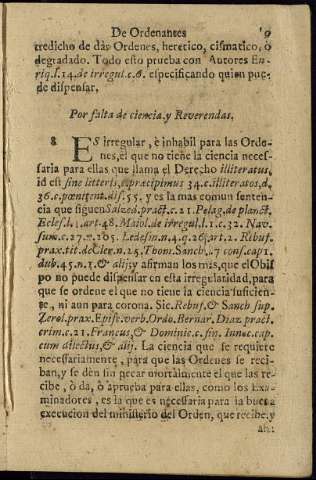 De Ordenantes 9
tredicho de dàr Ordenes, heretico, cismatico, ò
degradado. Todo esto prueba con Autores En-
riq.l.14.de irregul.c.6. especificando quien pue-
de dispensar.
Por falta de ciencia, y Reverendas.
8 ES irregular, è inhabil para las Orde-
nes, el que no tiene la ciencia neces-
saria para ellas que llama el Derecho illiteratus,
id est sine litteris, c.præcipimus 34. c. illiteratos, d.
36. c. pœnitent. dis. 55. y es la mas comun senten-
cia que siguen Salzed. pract. c. 21. Pelag. de planct.
Eclesi. l. art. 48. Maiol. de irregul. l. 1. c. 32. Nav.
sum. c. 27. n. 205. Ledesin. n. 4. q. 26. art. 2. Rebuf.
prax. tit. de Cler. n. 25. Thom. Sanch. 7 conf. cap. 1.
dub. 45. n. 1. & alij; y afirman los mas, que el Obis-
po no puede dispensar en esta irregularidad, para
que se ordene el que no tiene la ciencia suficien-
te, ni aun para corona. Sic. Rebuf. & Sanch sup.
Zerol. prax. Episc. verb. Ordo. Bernar, Diaz. pract.
crim. c. 21. Francus, & Dominic. c. fin. &
cum dilectus, & alij. La ciencia que se requiere
necessariamente, para que las Ordenes se reci-
ban, y se dèn sin pecar mortalmente el que las re-
cibe, ò da, ò aprueba para ellas, como los Exa-
minadores, es la que es necessaria para la buena
execucion del ministerio del Orden, que recibe, y